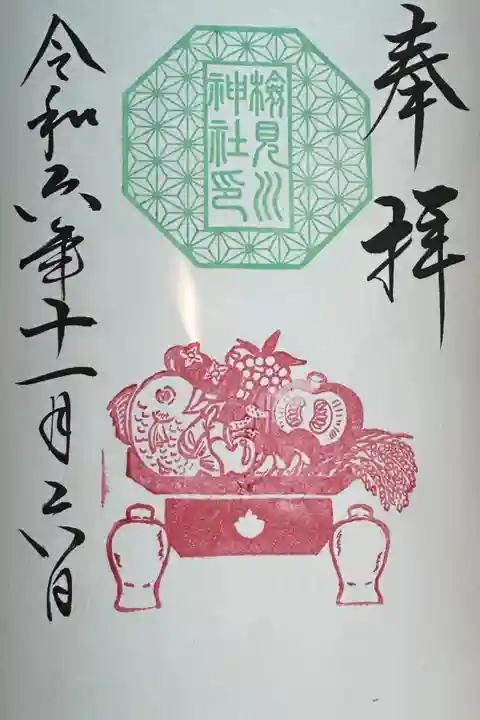 奉拝
検見川
神社印
令和六年十一月二六日